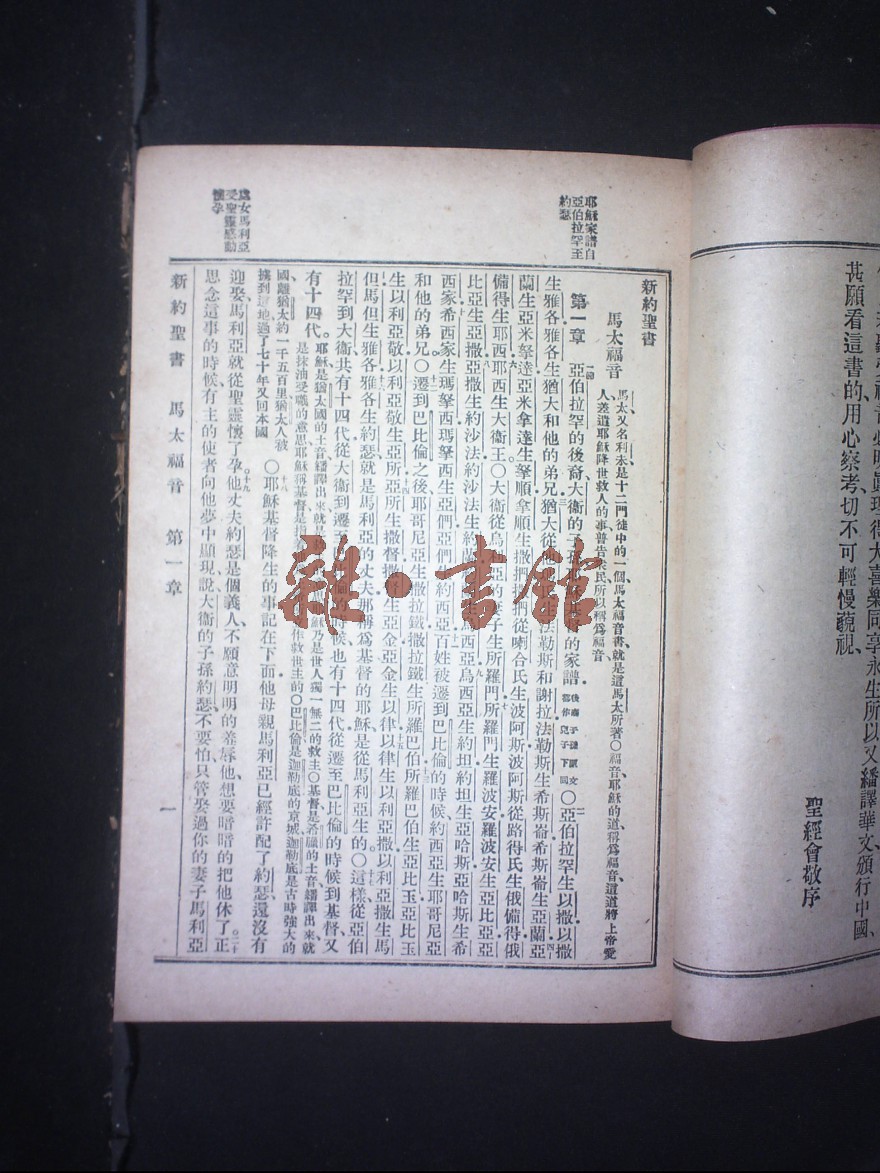 甚願看這書的用心察考切不可輕慢藐視
聖經會敬序
耶穌家譜自
亞伯拉罕至
約瑟
處女馬利亞
受聖靈感動
懷孕
新約聖書
馬太福音
馬太又名利未是十二門徒中的一個馬太福音書就是這馬太所著〇福音耶穌的道稱爲福音這道將上帝愛
人差遣耶穌降世救人的事普告衆民所以稱爲福音
第一章 一節 亞伯拉罕的後裔大衛的子孫 的家譜 後裔子孫原文都作兒子下同 〇二亞伯拉罕生以撒以撒
生雅各雅各生猶大和他的弟兄三猶大從 生法勒斯和謝拉法勒斯生希斯崙希斯崙生亞蘭四亞
蘭生亞米拏達亞米拿達生拏順拿順生撒 們五撒 們從喇合氏生波阿斯波阿斯從路得氏生俄備得俄
備得生耶西六耶西生大衛王〇大衛從烏 亞的妻子生所羅門七所羅門生羅波安羅波安生亞比亞亞
比亞生亞撒八亞撒生約沙法約沙法生約蘭 烏西亞九烏西亞生約坦約坦生亞哈斯亞哈斯生希
西家十希西家生瑪拏西瑪拏西生亞們亞們 約西亞十一百姓被遷到巴比倫的時候約西亞生耶哥尼亞
和他的弟兄〇十二遷到巴比倫之後耶哥尼亞生撒拉鐵撒拉鐵生所羅巴伯十三所羅巴伯生亞比玉亞比玉
生以利亞敬以利亞敬生亞所十四亞所生撒督撒督生亞金亞金生以律十五以律生以利亞撒以利亞撒生馬
但馬但生雅各十六雅各生約瑟就是馬利亞的丈夫那稱爲基督的耶穌是從馬利亞生的〇十七這樣從亞伯
拉罕到大衛共有十四代從大衛到遷至巴比倫的時候也有十四代從遷至巴比倫的時候到基督又
有十四代 耶穌是猶太國的土音繙譯出來就是 穌乃是世人獨一無二的救主〇基督是希臘的土音繙譯出來就
是抹油受職的意思耶穌稱基督是指着 作救世主的〇巴比倫是迦勒底的京城迦勒底是古時強大的
國離猶太約一千五百里猶太人被
擄到這地過了七十年又回本國 〇十八耶穌基督降生的事記在下面他母親馬利亞已經許配了約瑟還沒有
迎娶馬利亞就從聖靈懷了孕十九他丈夫約瑟是個義人不願意明明的羞辱他想要暗暗的把他休了二十正
思念這事的時候有主的使者向他夢中顯現說大衛的子孫約瑟不要怕只管娶過你的妻子馬利亞
新約聖書 馬太福音 第一章 一
雜·書館